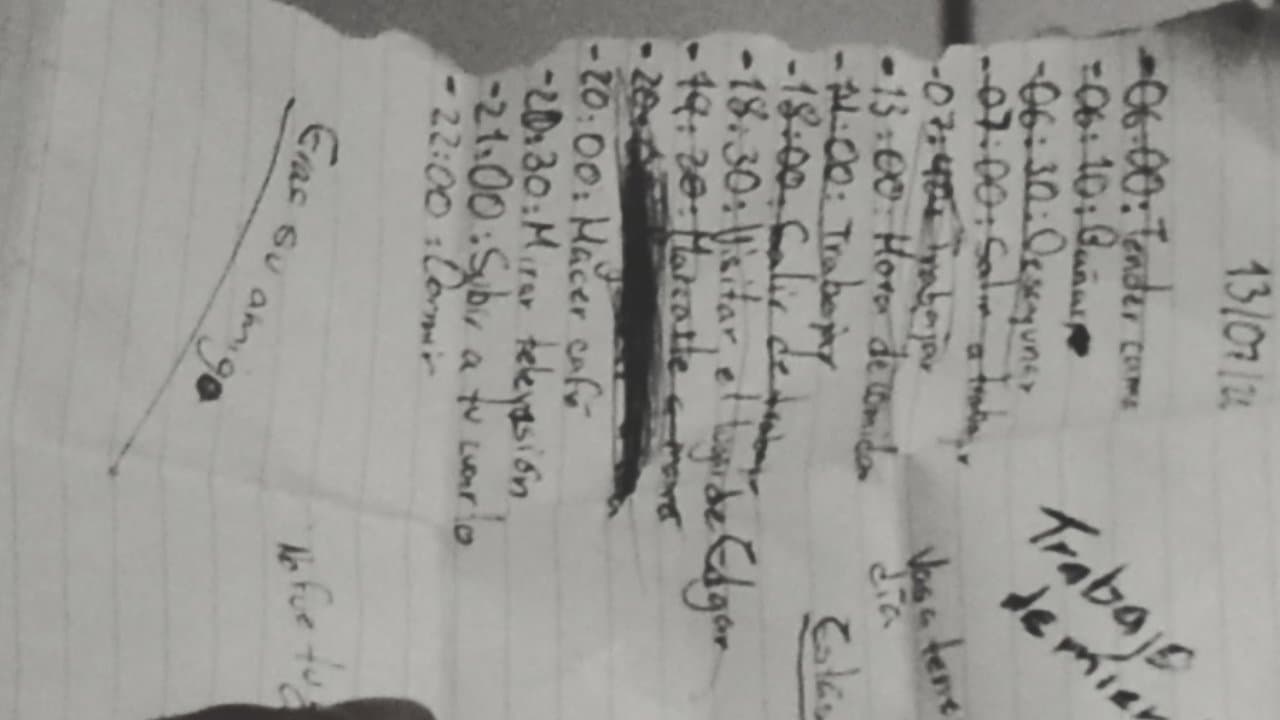 13/07/21
-06:00: Tender cama
-06:10: Bañar
-06:30: Desayunar
-07:00: Salir a trabajar
-07:40: Trabajar
-13:00: Hora de comida
-14:00: Trabajar
-18:00: Salir de trabajar
-18:30: Visitar el lugar de Edgar
-19:20: Marcarle a mamá
-20:00: Hacer café
-20:30: Mirar televisión
-21:00: Subir a tu cuarto
-22:00: Dormir
Eras su amigo
Trabajo
de mier
Vas a tene
día
Estas
No fue tu